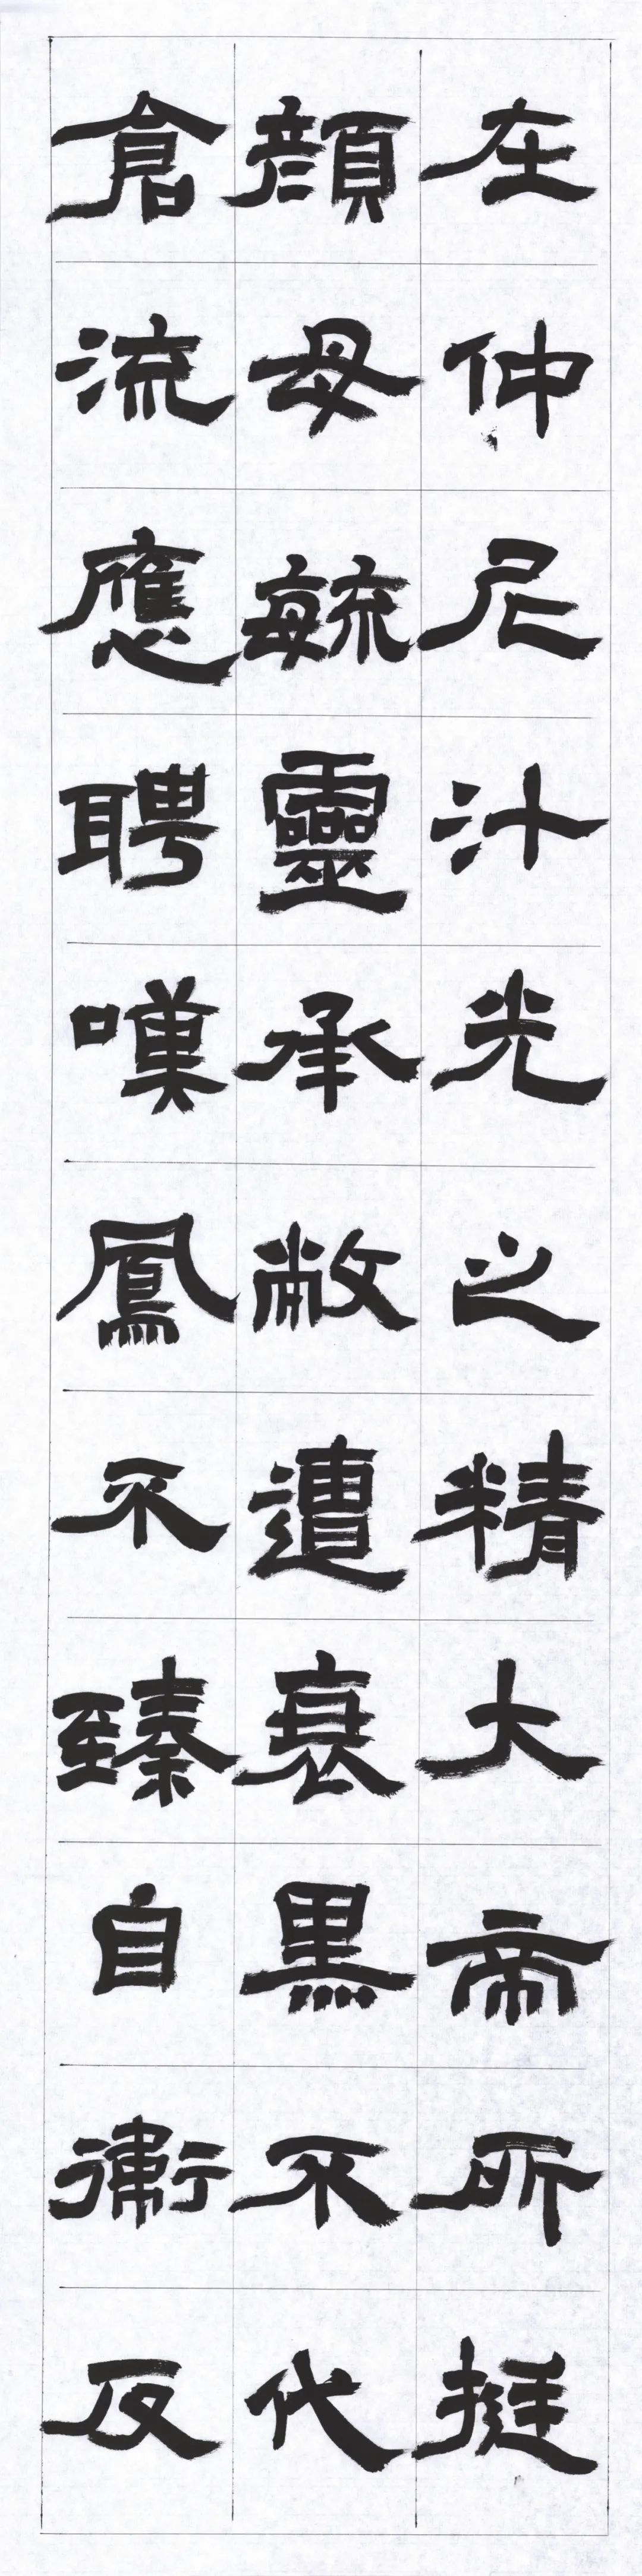 在仲尼汁光之精大帝所挺
顏母毓靈承敝遭衰黑不代
倉流應聘嘆鳳不臻自衛反